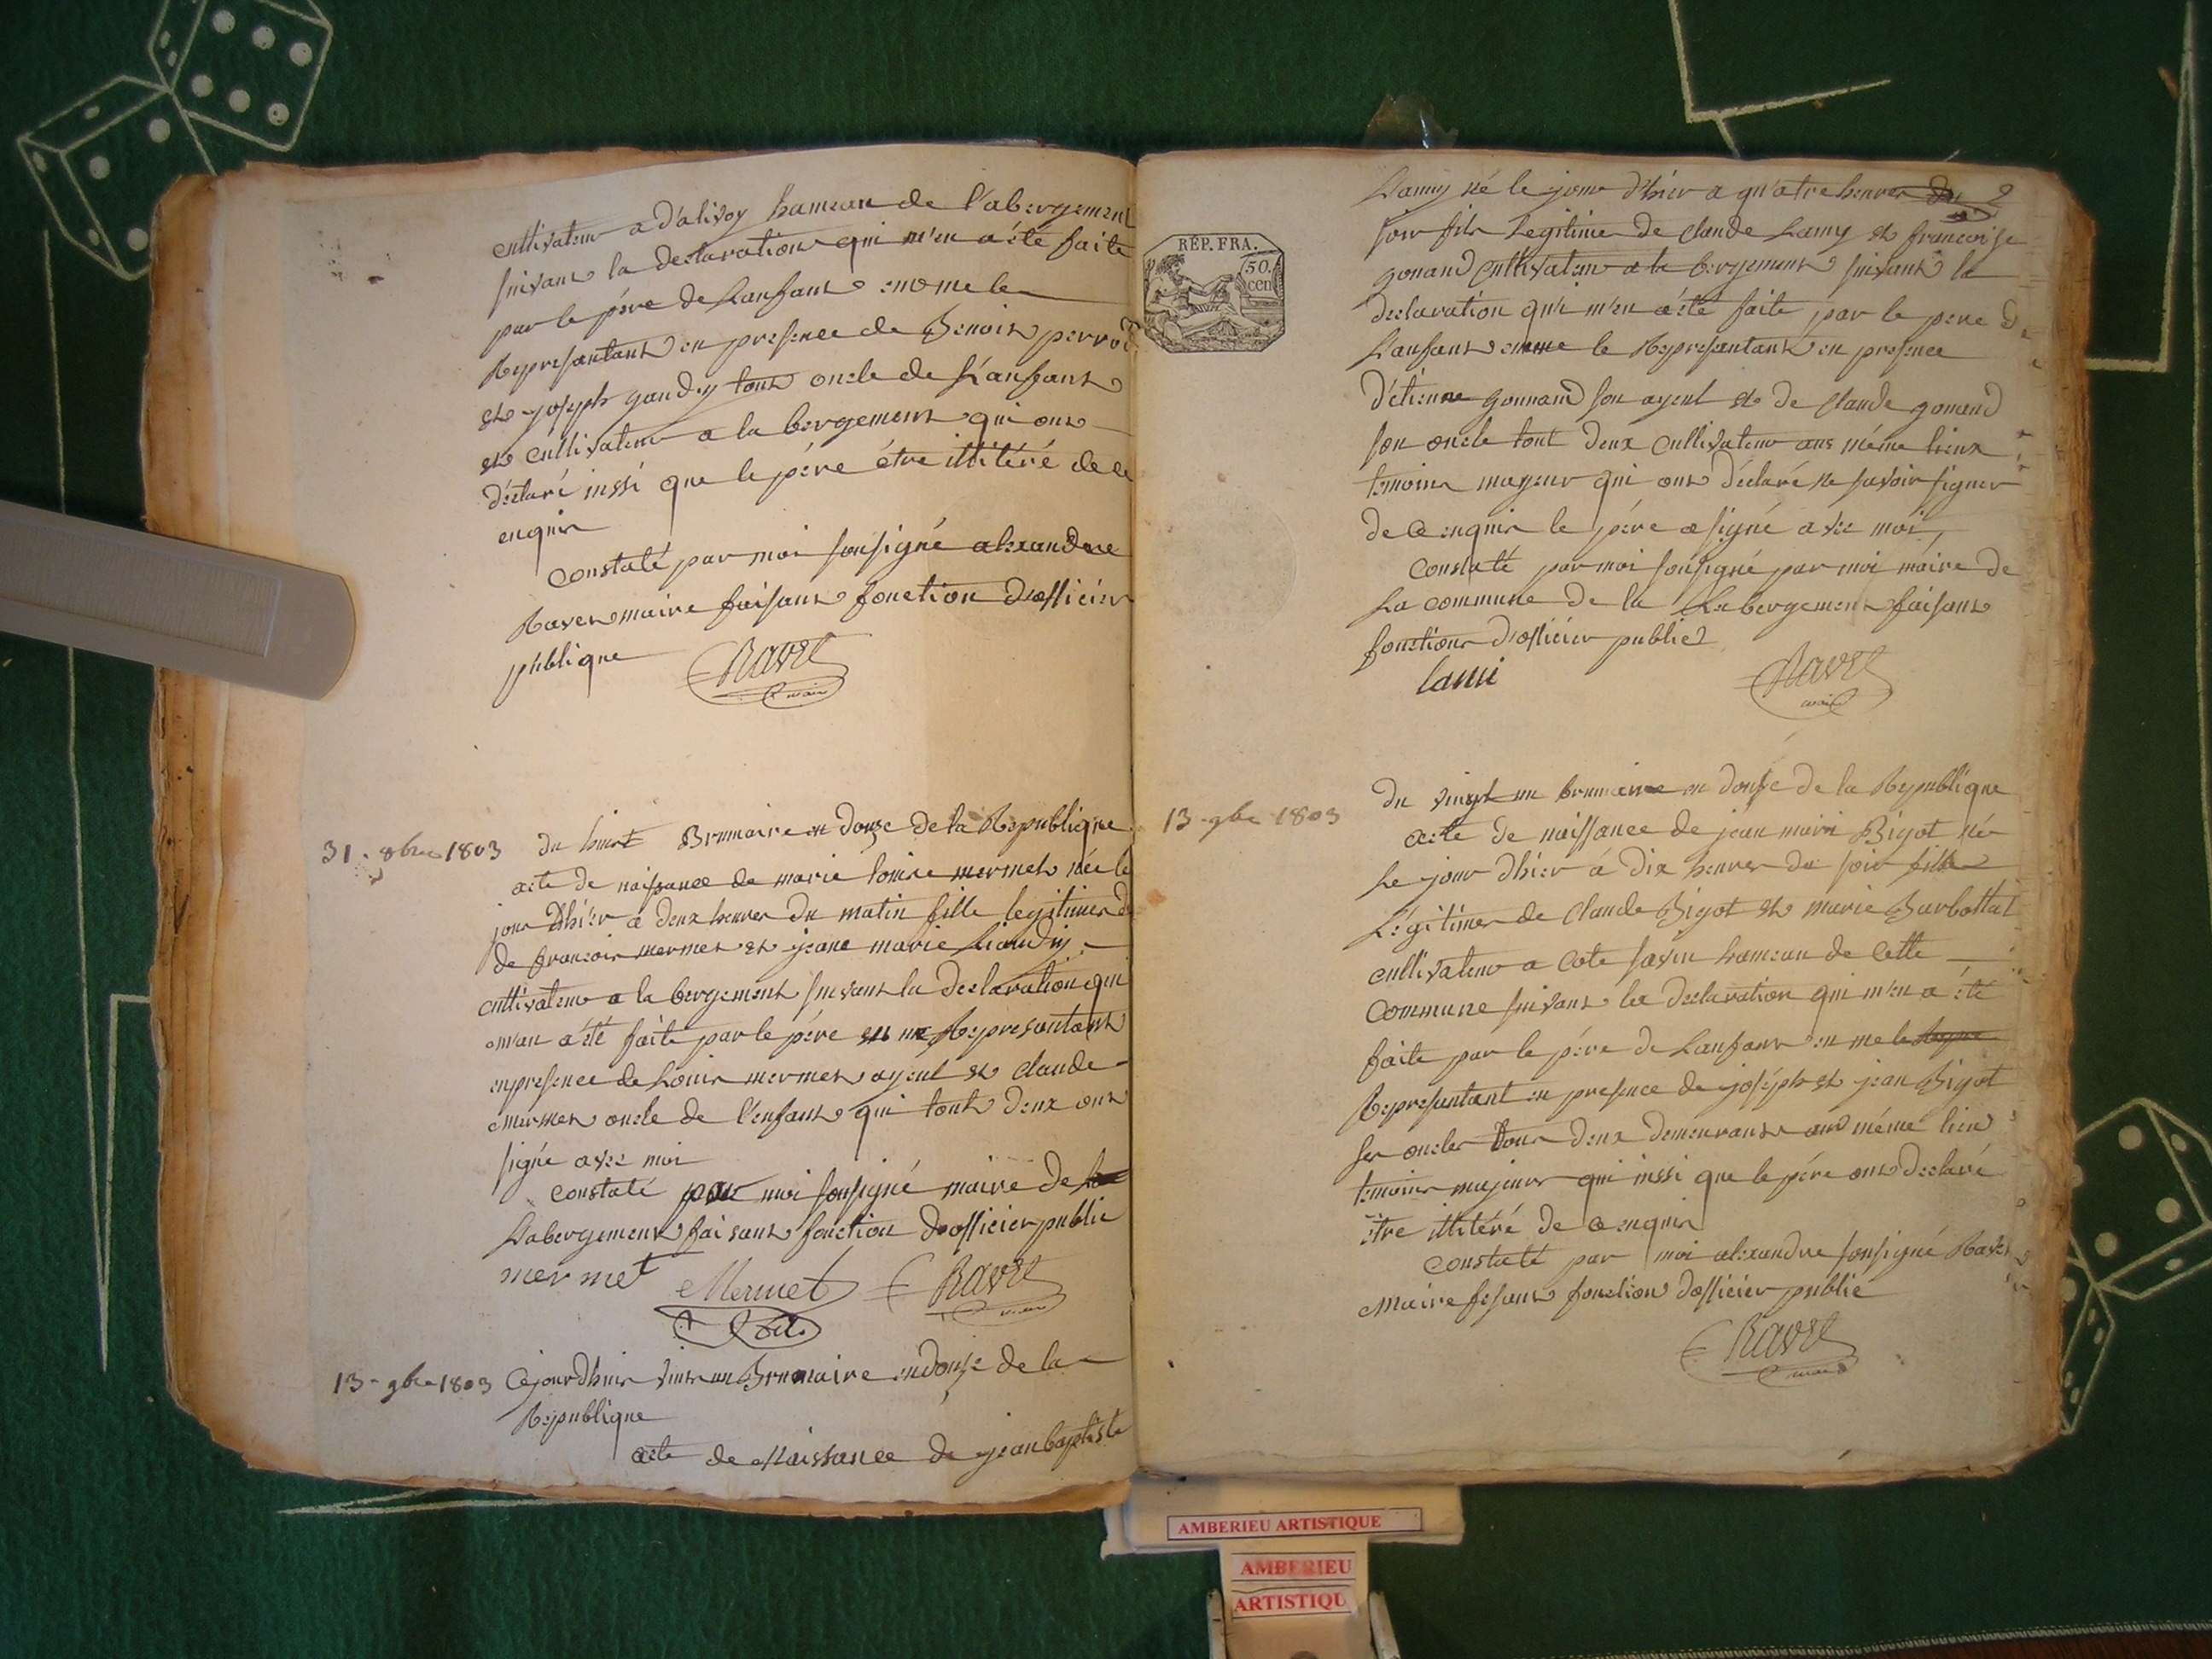 cultivateur a d'alivoy hameau de l'abergement
suivant la declaration qui m'en a été faite
par le pére de Lanfant en me le
Representant en presence de Benoit perrod
et joseph gaudy tout oncle de L'anfant
et cultivateur a la bergement qui ont
déclaré inssi que le pére étre illitéré de ce
enquis
Constaté par moi sousigné alexandre
Ravet maire faisant fonction d'officier
publique
Ravet
maire
31 . 8bre 1803
du huit Brumaire an douze de la Republique
acte de naissance de marie louise mermet née le
jour d'hier a deux heures du matin fille legitime de
de francois mermet et jeane marie
cultivateur a la bergement suivant la declaration qui
m'an a été faite par le pére en me Representant
en presence de Louis mermet ayeul et claude
mermet oncle de l'enfant qui tout deux ont
signé avec moi
constaté par moi sousigné maire de
Labergement faisant fonction d'officier public
mermet Mermet Ravet
maire
13 - 9bre 1803
Cejourdhuis vint un Brumaire an douze de la
Republique
acte de Naissance de jean baptiste
2
Lamy né le jour d'hier a quatre heures du
soir fils Legitime de claude Lamy et francoise
gonand cultivateur a la bergement suivant la
declaration qui m'en a été faite par le pere de
L'anfant en me le Representant en presence
d'étienne gonnand son ayeul et de claude gonand
son oncle tout deux cultivateur aus méme lieux
temoins mayeur qui ont déclaré ne savoir signer
de ce enquis le pére a signé avec moi,
Constaté par moi sousigné par moi maire de
La commune de la Labergement faisant
fonction d'officier public
lami Ravet
maire
RÉP. FRA.
50.
cen
13 - 9bre 1803
du vingt un brumaire an douze de la Republique
acte de naissance de jean marie Bigot né
Le jour d'hier á dix heures du soir fille
Légitime de Claude Bigot et marie Barbottat
cultivateur a Cote savin hameau de Cette
Commune suivant la declaration qui m'en a été
faite par le pére de Lanfant en me le
Representant en presence de joséph et jean Bigot
ses oncles tous deux demeurant aud méme lieu
temoins majeurs qui inssi que le pére ont declaré
étre illitéré de ce enquis
Constaté par moi alexandre sousigné Ravet
Maire fesant fonction dofficier public
Ravet
maire
AMBERIEU ARTISTIQUE
AMBERIEU
ARTISTIQU